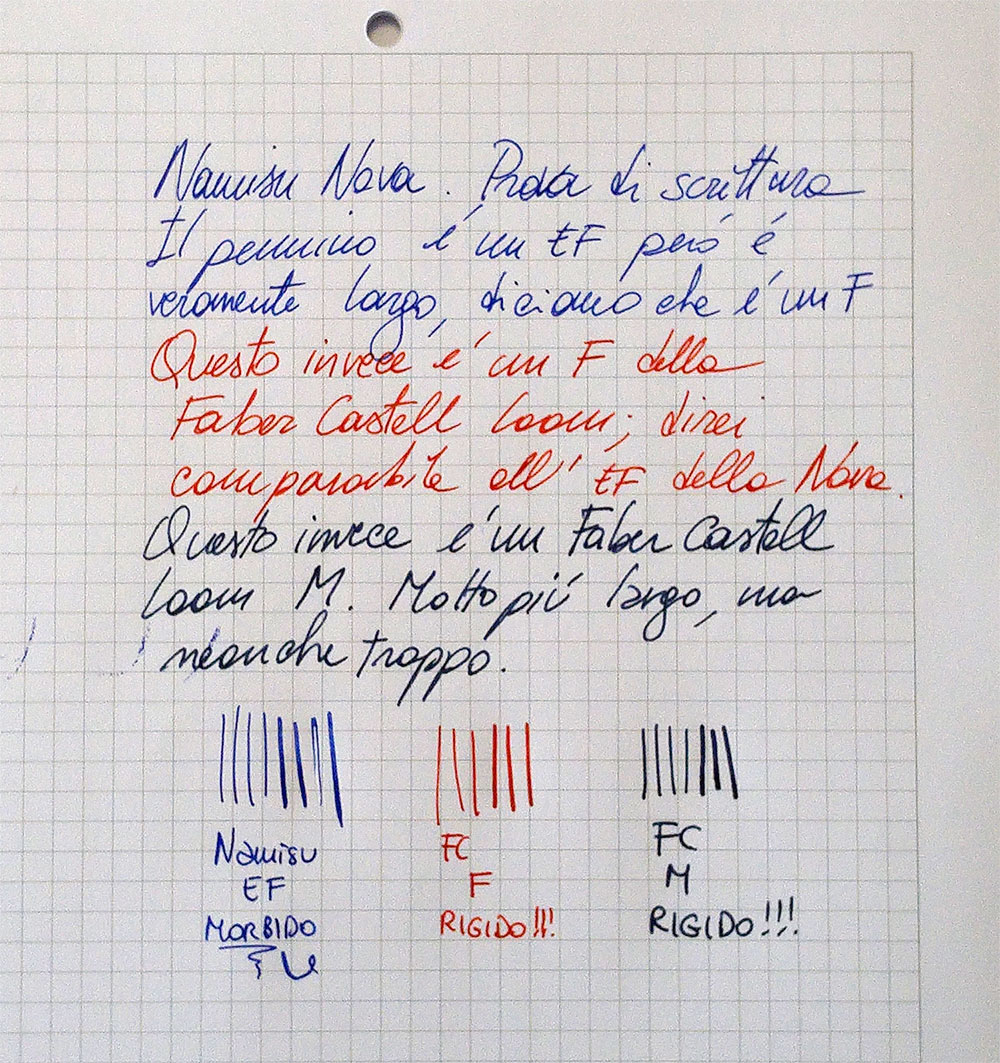 Namisu Nova. Prova di scrittura
Il pennino è un EF però è
veramente largo, diciamo che è un F
Questo invece è un F della
Faber Castell Loom; direi
comparabile all' EF della Nova.
Questo invece è un Faber Castell
Loom M. Molto più largo, ma
neanche troppo.
Namisu
EF
MORBIDO
FC
F
RIGIDO!!!
FC
M
RIGIDO!!!